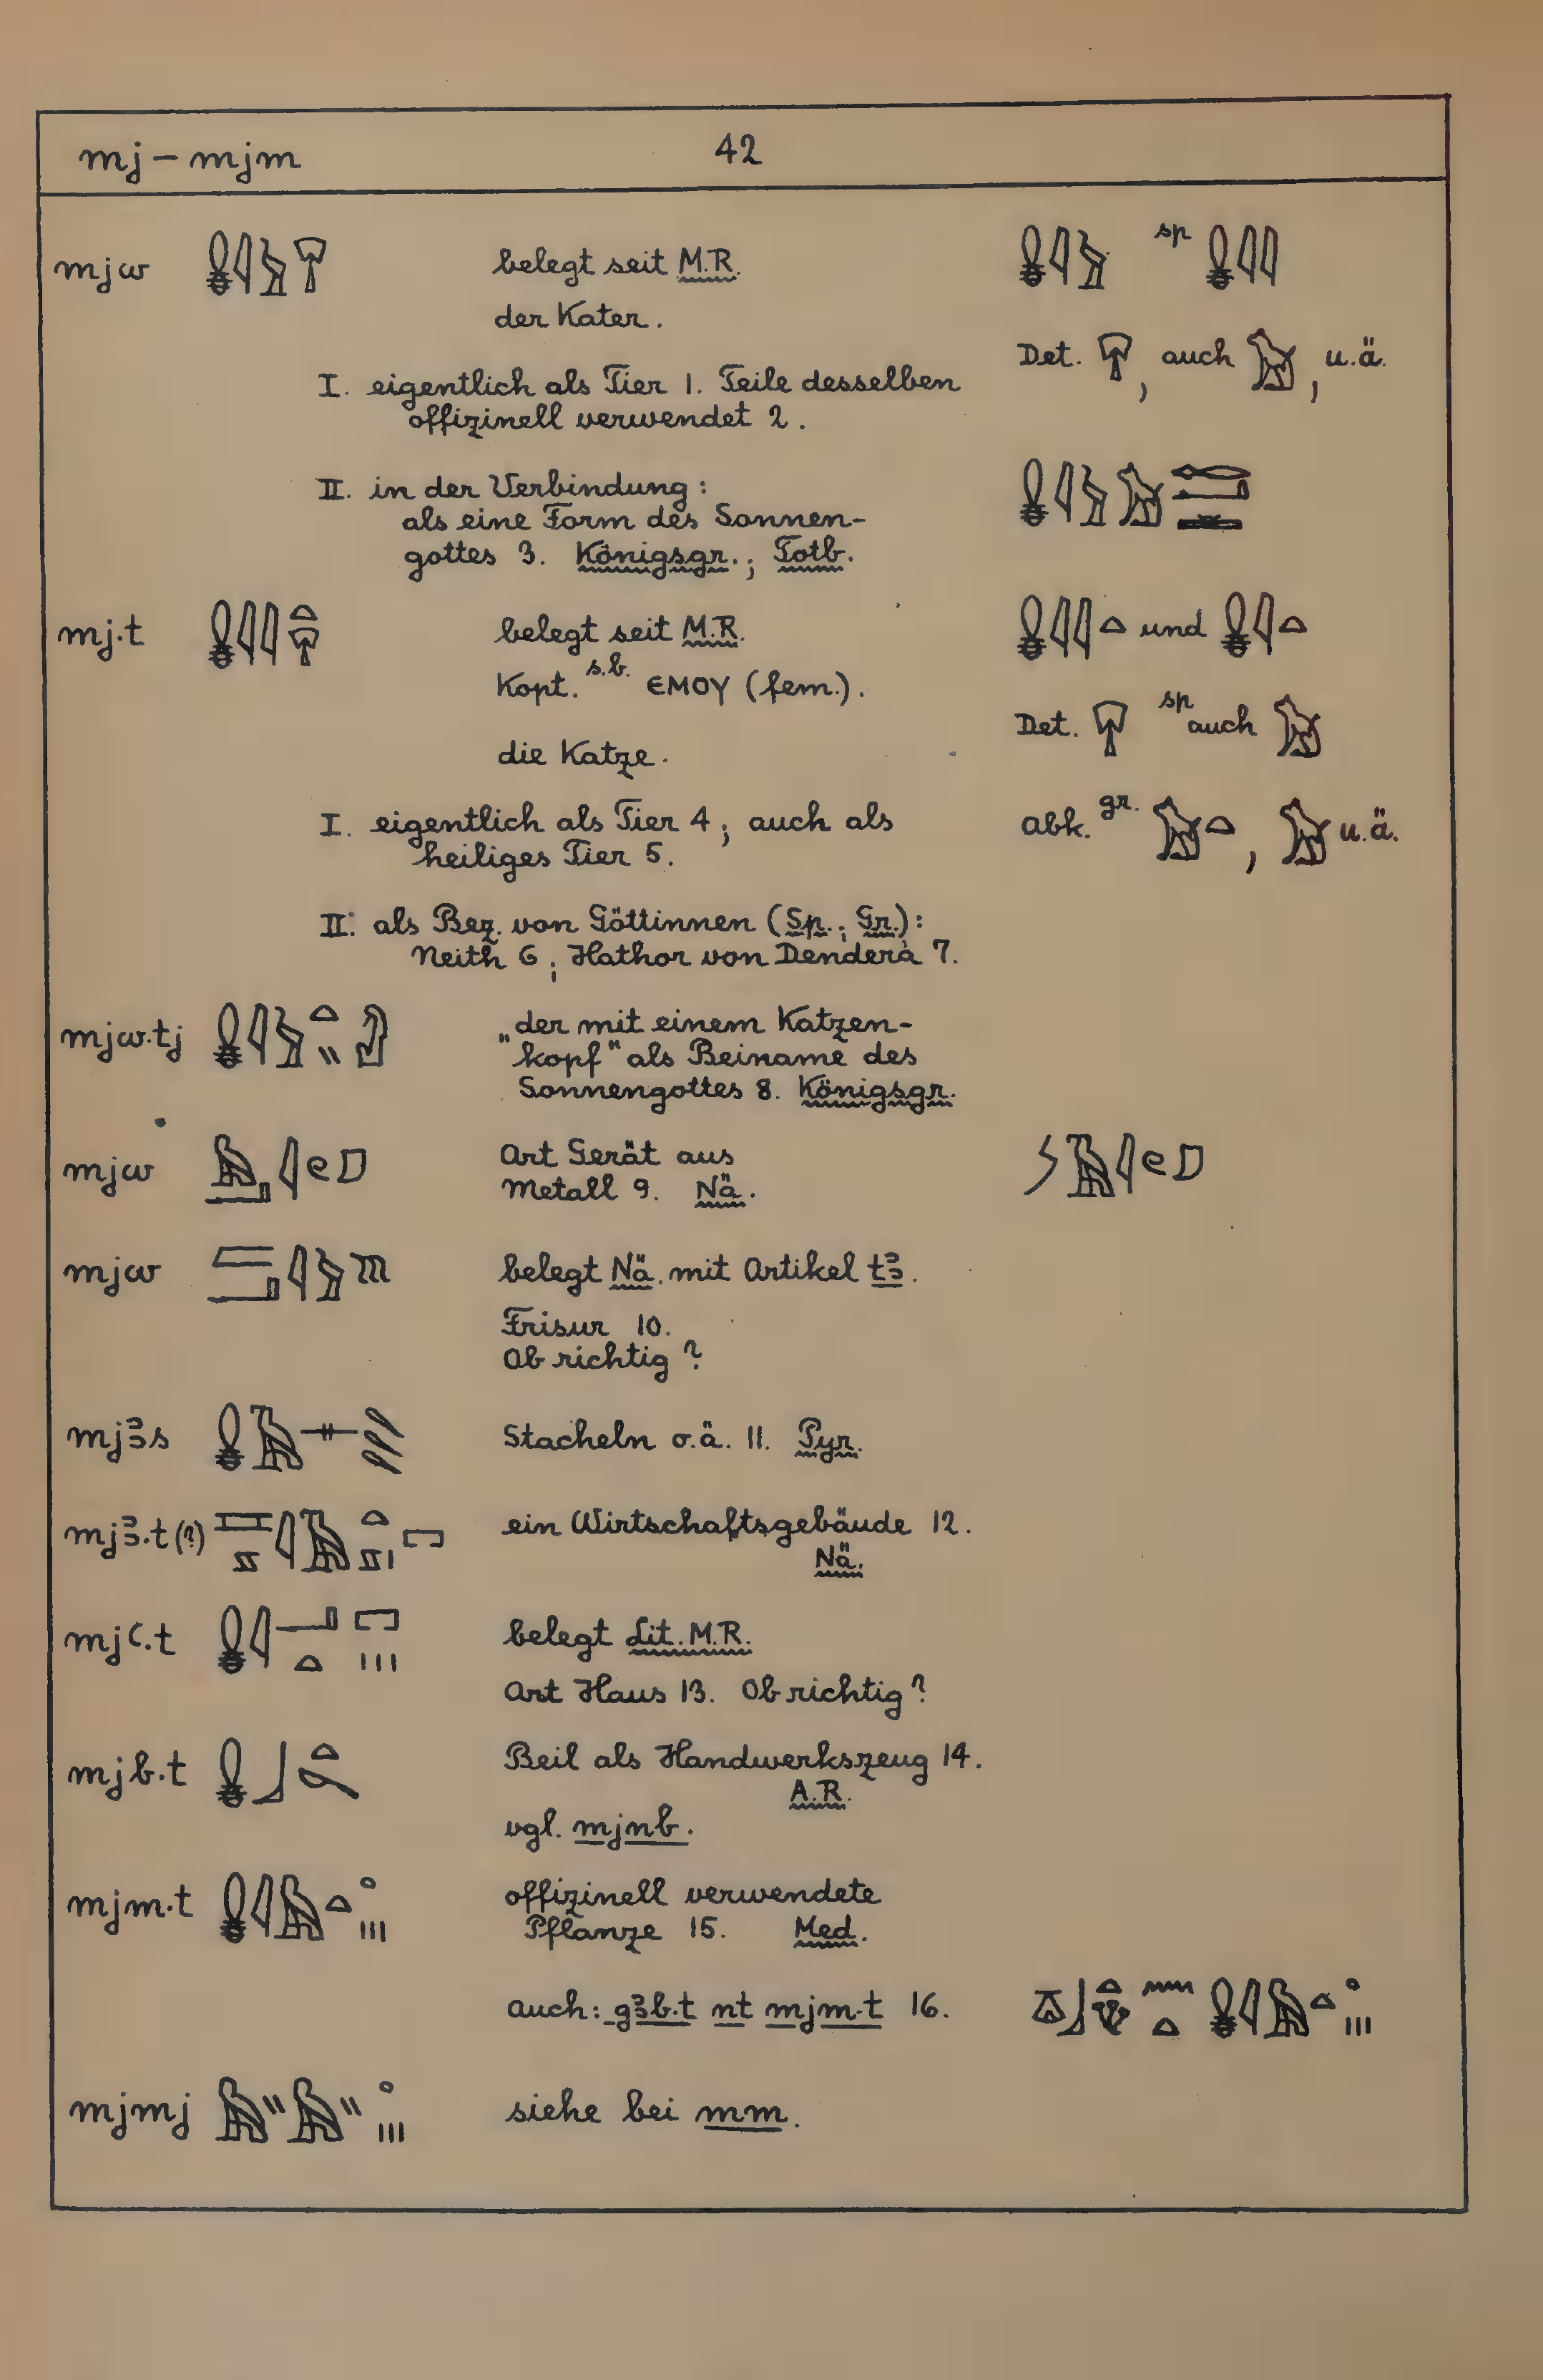 mj – mjm 42
mjw belegt seit M.R.
der Kater.
sp
Det. , auch , u.ä.
I. eigentlich als Tier 1. Teile desselben
offizinell verwendet 2.
II. in der Verbindung:
als eine Form des Sonnen-
gottes 3. Königsgr.; Totb.
mj.t belegt seit M.R. und
Kopt. s.b. ⲉⲙⲟⲩ (fem.).
Det. sp auch
die Katze.
I. eigentlich als Tier 4; auch als
heiliges Tier 5.
abk. gr. , u.ä.
II. als Bez. von Göttinnen (Sp.; Gr.):
Neith 6; Hathor von Dendera 7.
mjw.tj „der mit einem Katzen-
kopf" als Beiname des
Sonnengottes 8. Königsgr.
mjw Art Gerät aus
Metall 9. Nä.
mjw belegt Nä. mit Artikel tꜣ.
Frisur 10.
Ob richtig?
mjꜣs Stacheln o.ä. 11. Pyr.
mjꜣ.t (?) ein Wirtschaftsgebäude 12.
Nä.
mjꜥ.t belegt Lit. M.R.
Art Haus 13. Ob richtig?
mjb.t Beil als Handwerkszeug 14.
A.R.
vgl. mjnb.
mjm.t offizinell verwendete
Pflanze 15. Med.
auch: gꜣb.t nt mjm.t 16.
mjmj siehe bei mm.